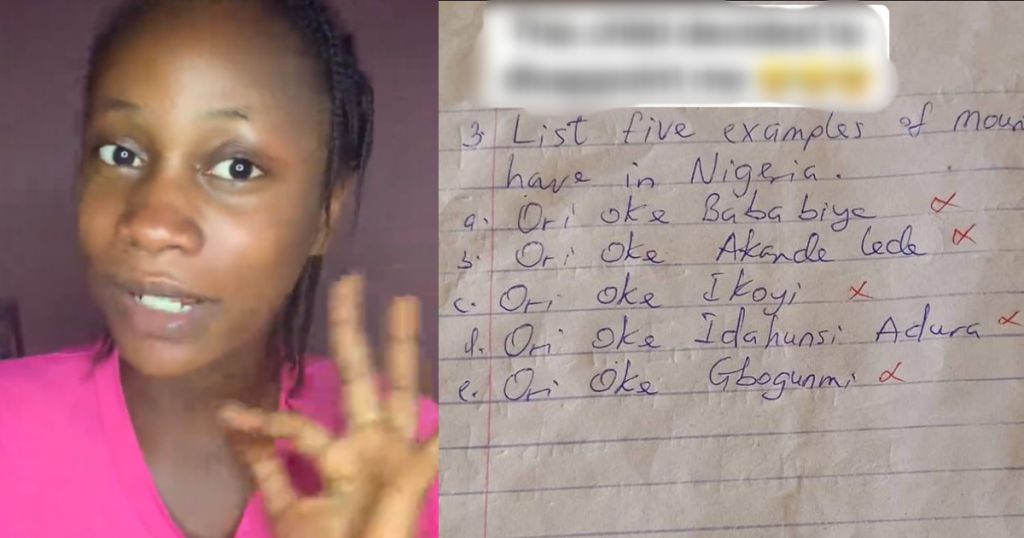 3. List five examples of moun
have in Nigeria.
a. Ori oke Baba biye
b. Ori Oke Akande lede
c. Ori oke Ikoyi
d. Ori oke Idahunsi Adura
e. Ori Oke Gbogunmi